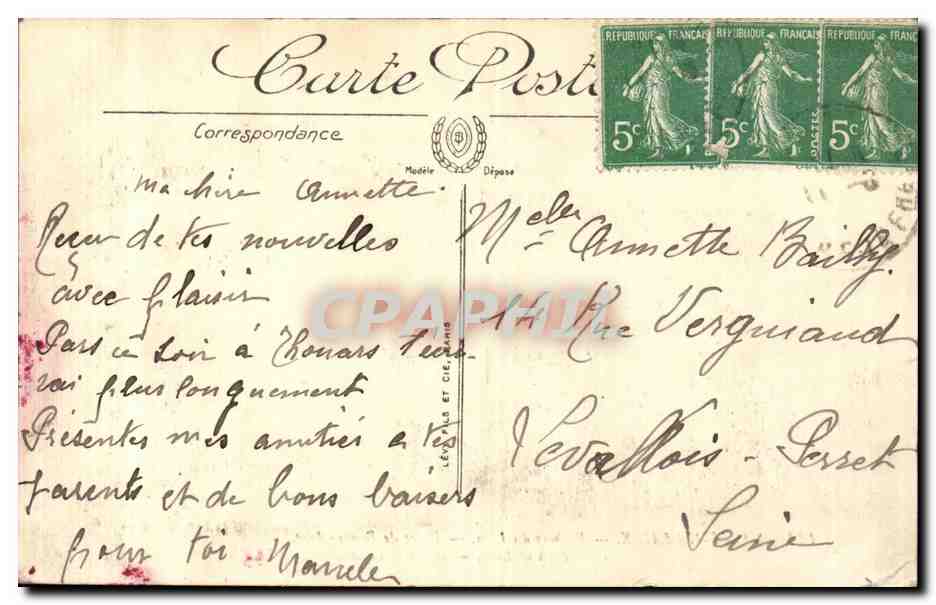 Carte Post
RÉPUBLIQUE FRANÇAIS
5c
POSTES
RÉPUBLIQUE FRANÇAIS
5c
POSTES
RÉPUBLIQUE FRANÇAIS
5c
Correspondance
Modèle Déposé
LÉVY FILS ET CIE, PARIS
ma chère Annette.
Reçu de tes nouvelles
avec plaisir
Pars ce soir à Thouars t'écri
rai plus longuement
Présentes mes amitiés a tes
parents et de bons baisers
pour toi
Melle Annette Bailly.
14 Rue Vergniaud
Levallois-Perret
Seine
CPAPHIL